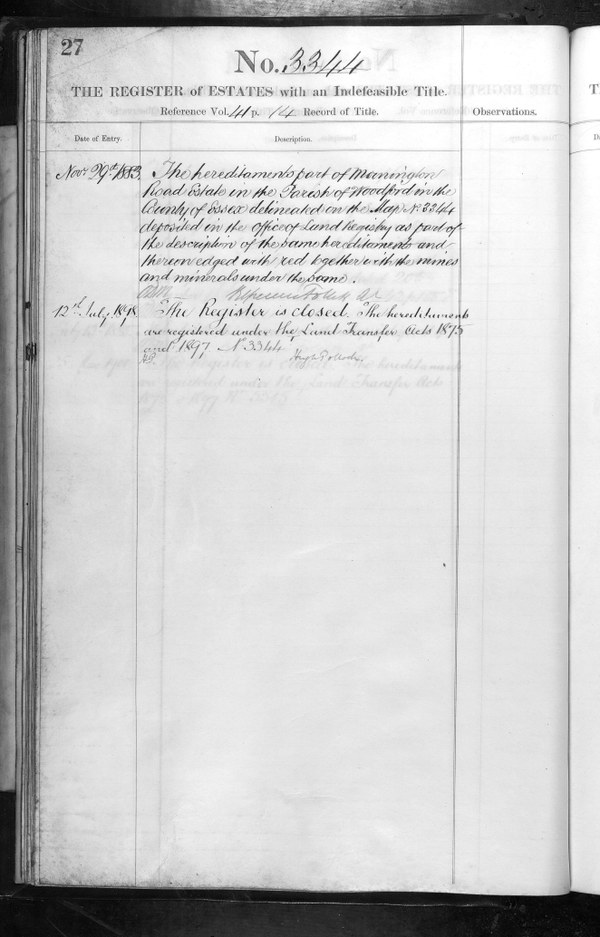 27
No. 3344
THE REGISTER of ESTATES with an Indefeasible Title.
Reference Vol. 41 p. 14 Record of Title.
Observations.
Date of Entry.
Description.
Novr 29th 1883.
The hereditaments part of Monington
Road Estate in the Parish of Woodford in the
County of Essex delineated on the Map No. 3344
deposited in the office of Land Registry as part of
the description of the same hereditaments and
thereon edged with red together with the mines
and minerals under the same.
12th July 1898.
The Register is closed. The hereditaments
are registered under the Land Transfer Acts 1875
and 1897 No. 3344
Hugh Pollock